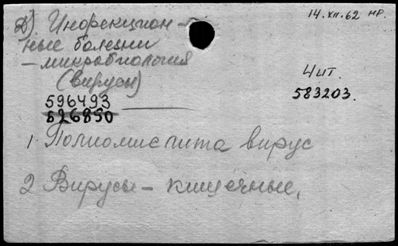 Д). Инфекцион-
ные болезни
– микробиология
(вирусы)
14.XII.62 нр.
4 ит.
583203.
596493
626850
1 Полиомиелита вирус
2 Вирусы – кишечные,